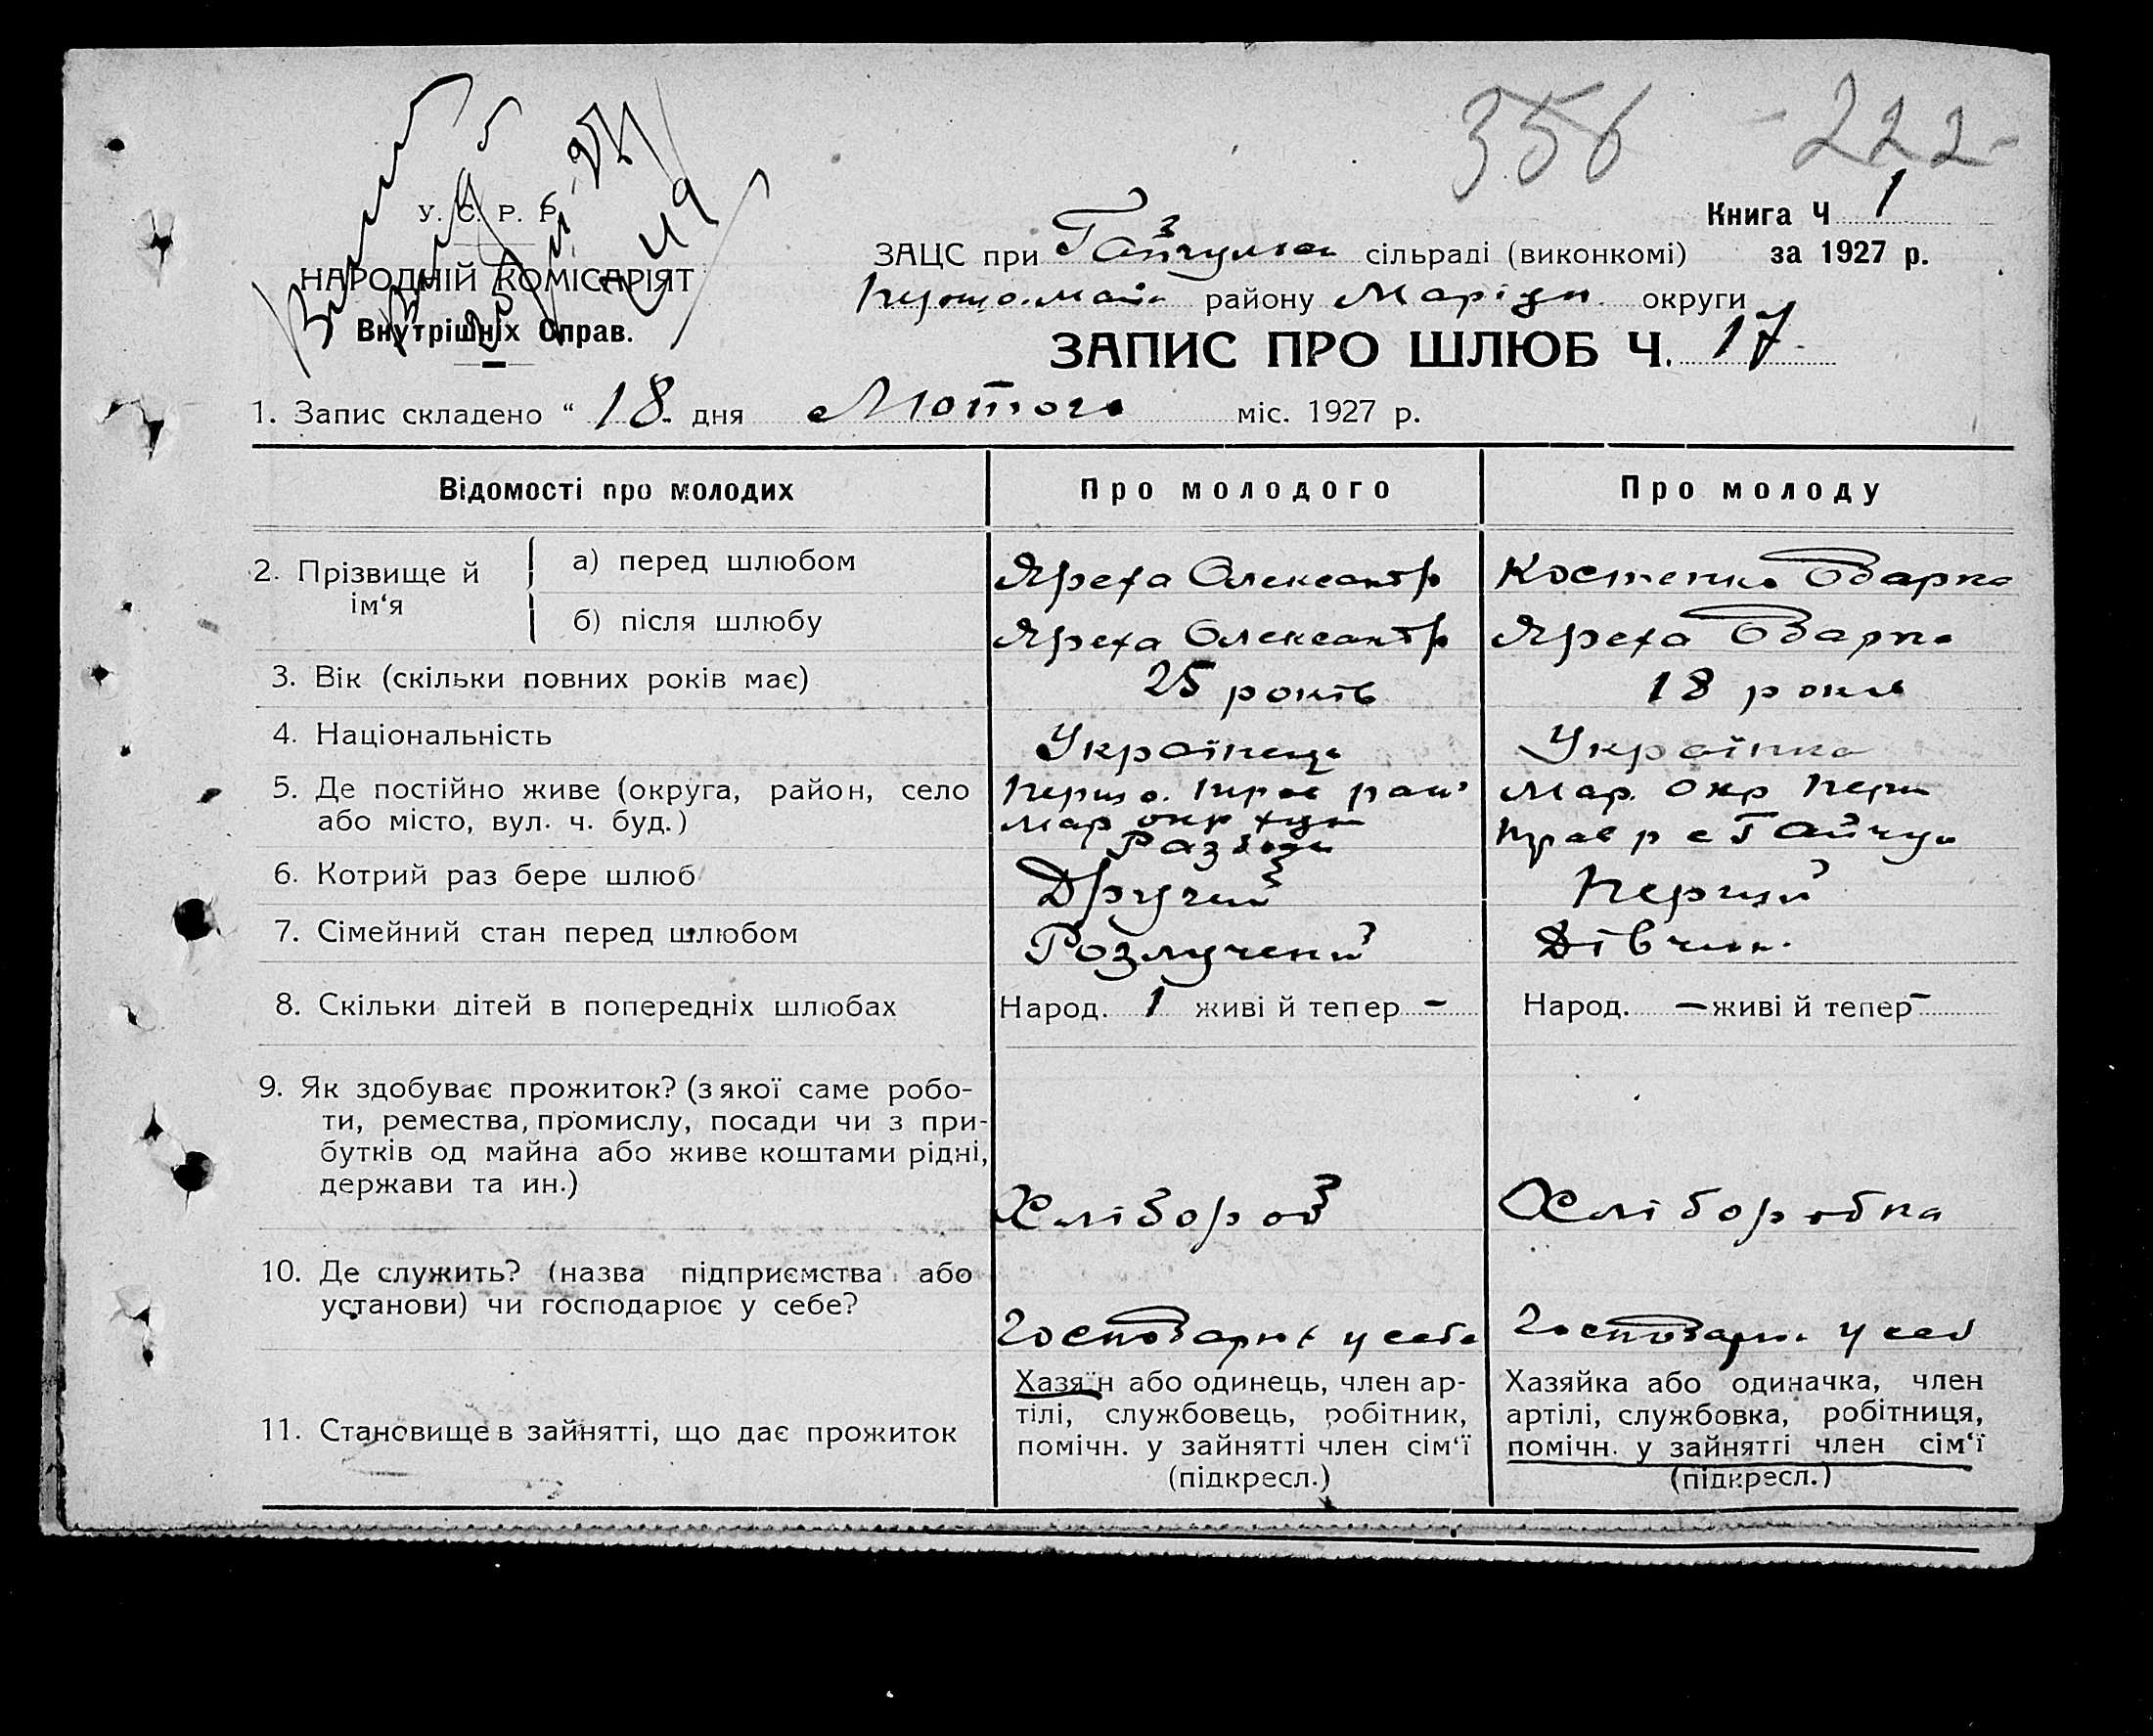 356 - 222 -
У. С. Р. Р.
НАРОДНІЙ КОМІСАРІЯТ
Внутрішніх Справ.
Книга Ч 1
ЗАЦС при сільраді (виконкомі) за 1927 р.
району округи
ЗАПИС ПРО ШЛЮБ Ч. 17
1. Запис складено “ 18 дня Лютого міс. 1927 р.
Відомості про молодих Про молодого Про молоду
2. Прізвище й ім‘я
а) перед шлюбом Яреха Олександр Костенко Одарка
б) після шлюбу Яреха Олександр Яреха Одарка
3. Вік (скільки повних років має) 25 років 18 років
4. Національність Українець Українка
5. Де постійно живе (округа, район, село
або місто, вул. ч. буд.)
Мар окр
Мар. окр
6. Котрий раз бере шлюб Другий Перший
7. Сімейний стан перед шлюбом Розлучений Дівчина
8. Скільки дітей в попередніх шлюбах Народ. 1 живі й тепер - Народ. - живі й тепер -
9. Як здобуває прожиток? (з якої саме робо-
ти, ремества, промислу, посади чи з при-
бутків од майна або живе коштами рідні,
держави та ин.)
Хлібороб Хліборобка
10. Де служить? (назва підприємства або
установи) чи господарює у себе?
у себе
11. Становище в зайнятті, що дає прожиток
Хазяїн або одинець, член ар-
тілі, службовець, робітник,
помічн. у зайнятті член сім‘ї
(підкресл.)
Хазяйка або одиначка, член
артілі, службовка, робітниця,
помічн. у зайнятті член сім‘ї
(підкресл.)